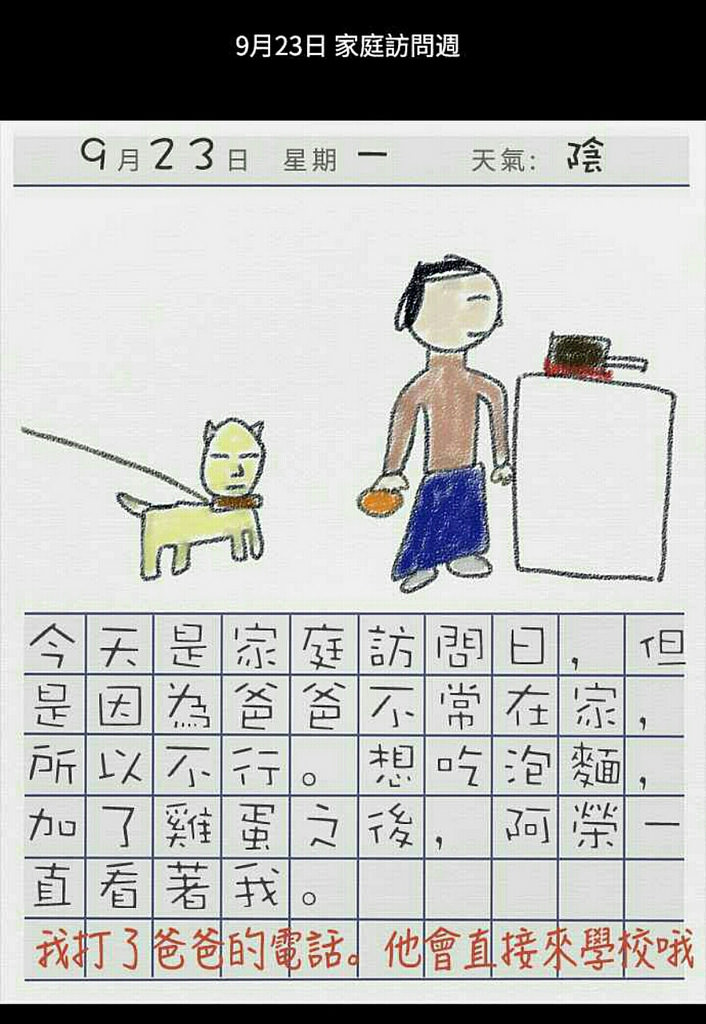 9月23日 家庭訪問週
9月23日 星期一 天氣: 陰
今天是家庭訪問日，但
是因為爸爸不常在家，
所以不行。想吃泡麵，
加了雞蛋之後，阿榮一
直看著我。
我打了爸爸的電話。他會直接來學校哦